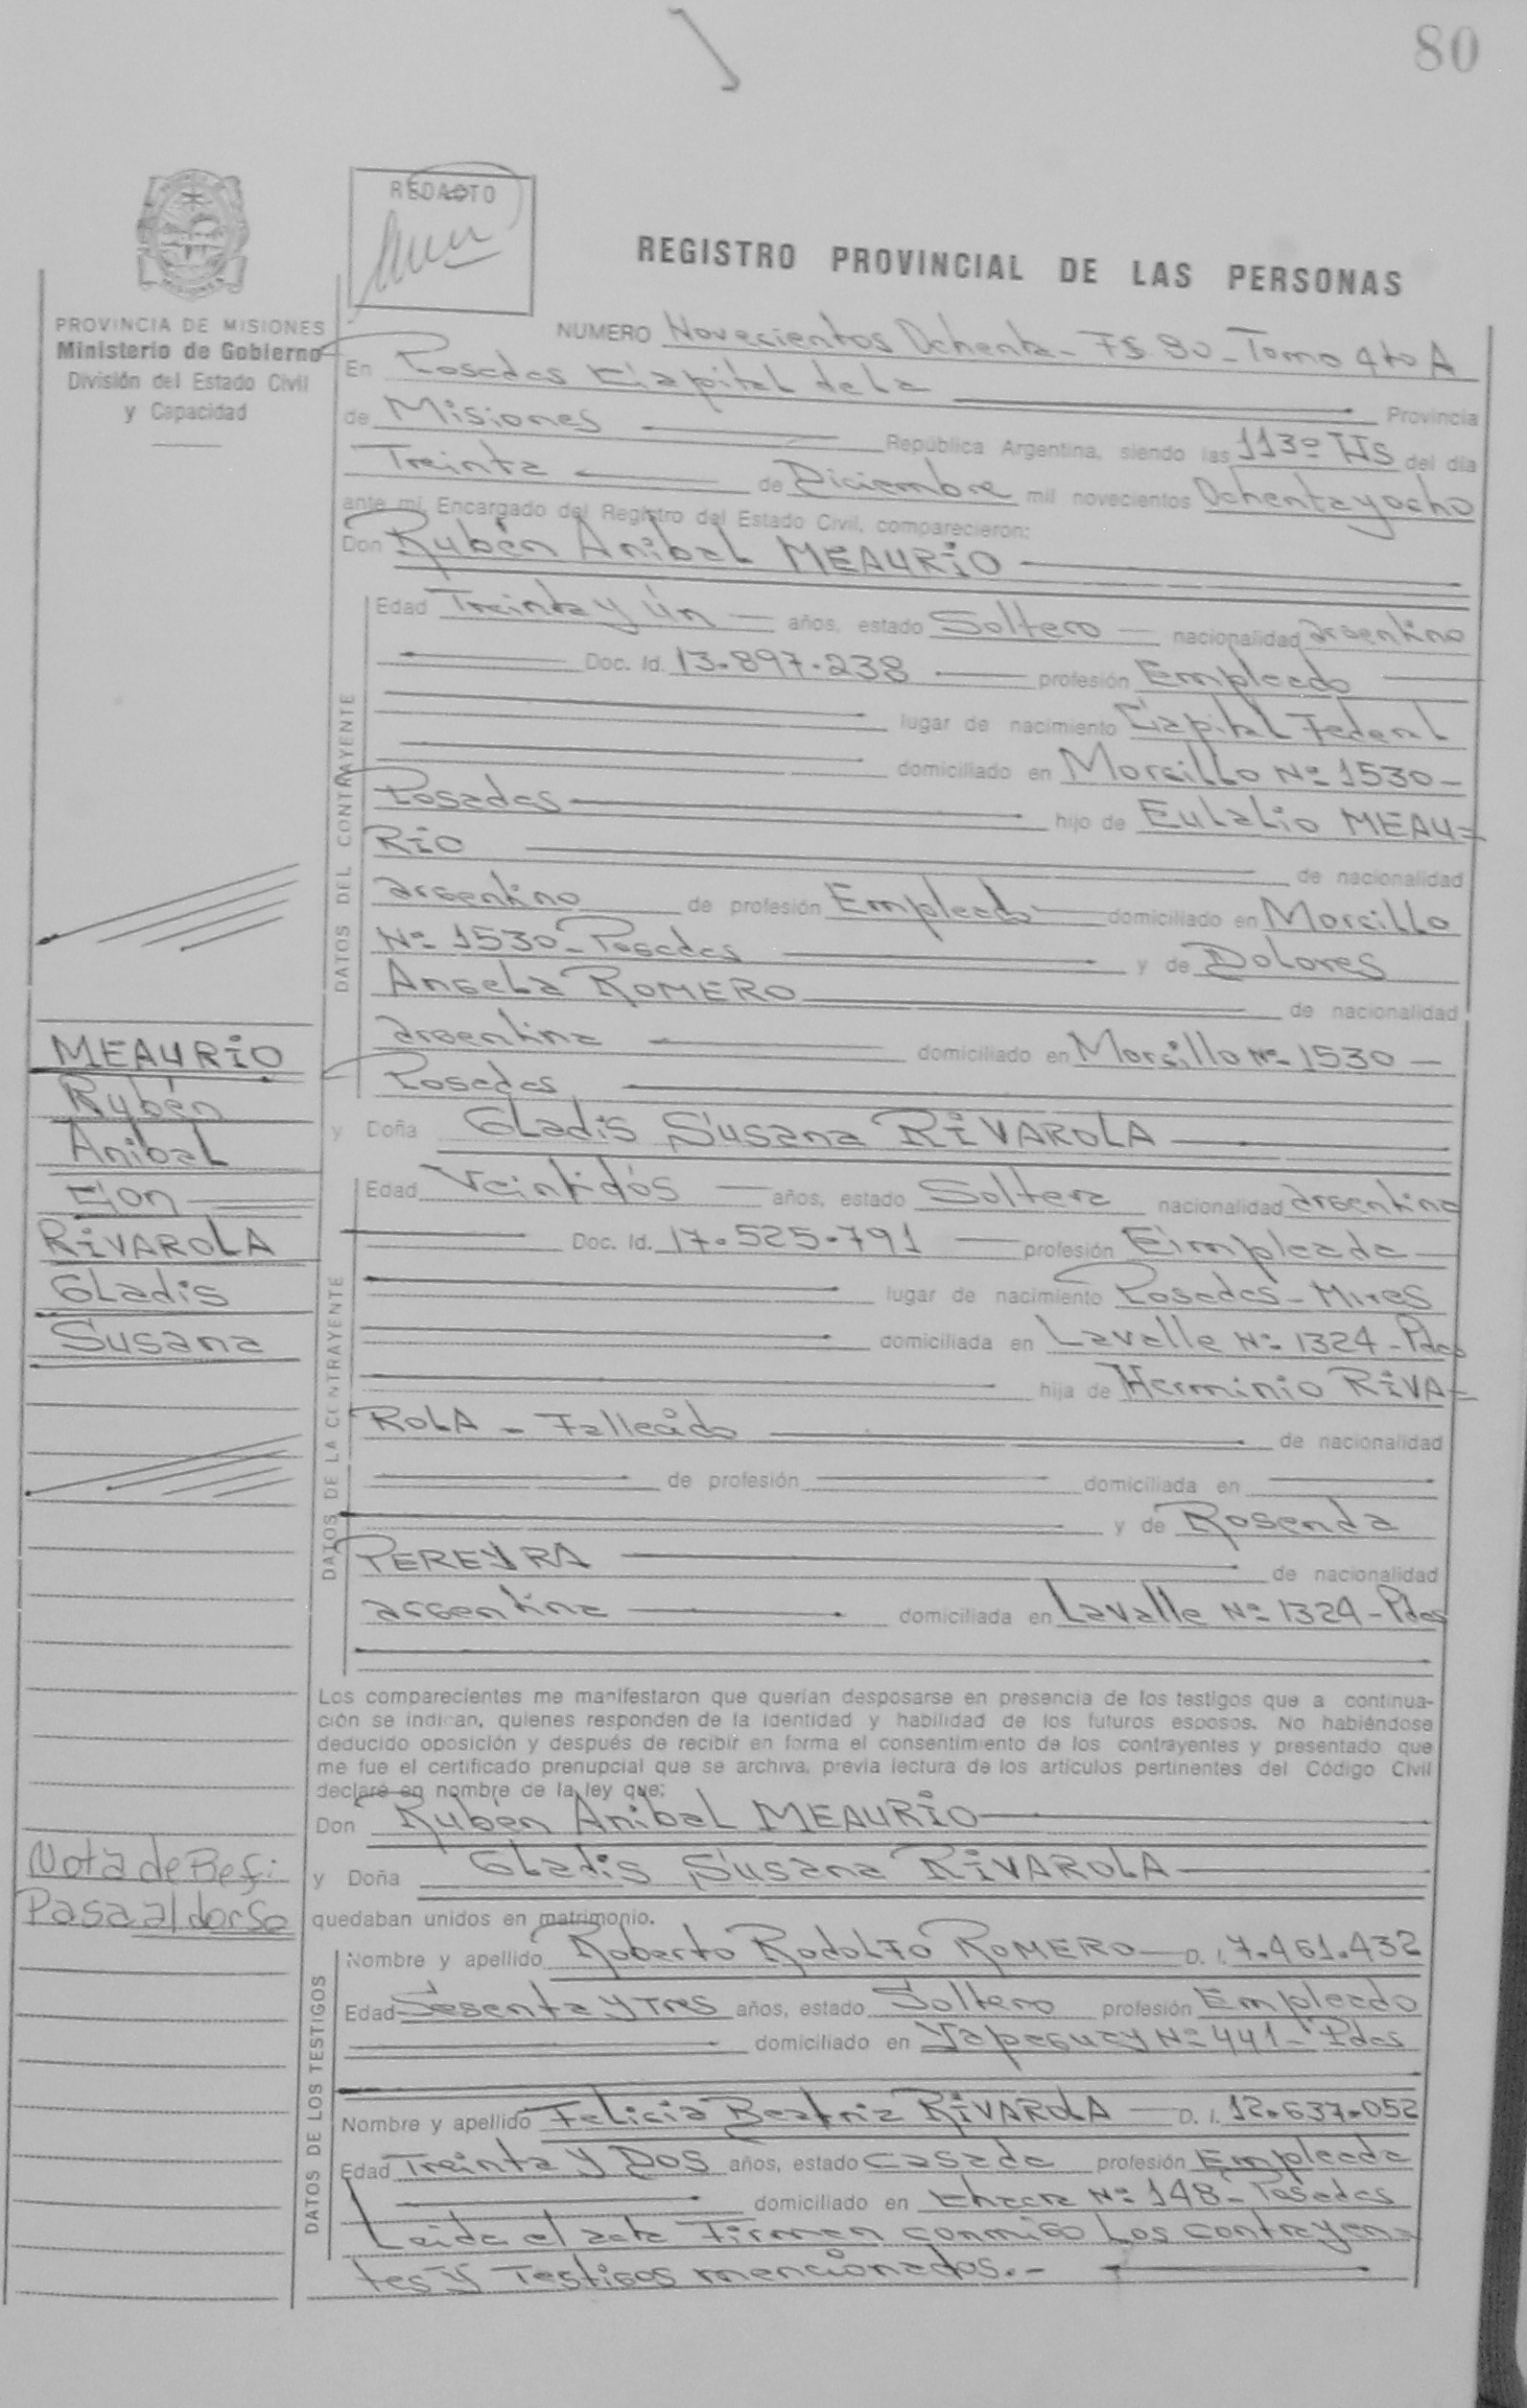 80
REDACTO
REGISTRO PROVINCIAL DE LAS PERSONAS
PROVINCIA DE MISIONES
Ministerio de Gobierno
División del Estado Civil
y Capacidad
NUMERO Novecientos Ochenta - Fs 80 - Tomo 4to A
En Posadas Capital de la Provincia
de Misiones República Argentina, siendo las 1130 Hs del día
Treinta de Diciembre mil novecientos Ochenta y ocho
ante mí, Encargado del Registro del Estado Civil, comparecieron:
Don Rubén Anibal MEAURIO
DATOS DEL CONTRAYENTE
Edad Treinta y ún años, estado Soltero nacionalidad argentino
Doc. Id. 13.897.238 profesión Empleado
lugar de nacimiento Capital Federal
domiciliado en Morcillo Nº 1530 -
Posadas hijo de Eulalio MEAU=
RIO de nacionalidad
argentino de profesión Empleado domiciliado en Morcillo
Nº 1530 - Posadas y de Dolores
Angela ROMERO de nacionalidad
argentina domiciliado en Morcillo Nº 1530 -
Posadas
y Doña Gladis Susana RIVAROLA
DATOS DE LA CONTRAYENTE
Edad Veintidós años, estado Soltera nacionalidad argentina
Doc. Id. 17.525.791 profesión Empleada
lugar de nacimiento Posadas - Mnes
domiciliada en Lavalle Nº 1324 - Pdas
hija de Herminio RIVA=
ROLA - Fallecido de nacionalidad
de profesión domiciliada en
y de Rosenda
PEREYRA de nacionalidad
argentina domiciliada en Lavalle Nº 1324 - Pdas
Los comparecientes me manifestaron que querían desposarse en presencia de los testigos que a continua-
ción se indican, quienes responden de la identidad y habilidad de los futuros esposos. No habiéndose
deducido oposición y después de recibir en forma el consentimiento de los contrayentes y presentado que
me fue el certificado prenupcial que se archiva, previa lectura de los artículos pertinentes del Código Civil
declaré en nombre de la ley que:
Don Rubén Anibal MEAURIO
y Doña Gladis Susana RIVAROLA
quedaban unidos en matrimonio.
DATOS DE LOS TESTIGOS
Nombre y apellido Roberto Rodolfo ROMERO D. I. 7.461.432
Edad Sesenta y Tres años, estado Soltero profesión Empleado
domiciliado en Yapeguay Nº 441 - Pdas
Nombre y apellido Felicia Beatriz RIVAROLA D. I. 12.637.052
Edad Treinta y Dos años, estado casada profesión Empleada
domiciliado en Chacra Nº 148 - Posadas
Leida el acta Firman conmigo los contrayen=
tes y Testigos mencionados.-
MEAURIO
Rubén
Anibal
Con
RIVAROLA
Gladis
Susana
Nota de Ref:
Pasa al dorso